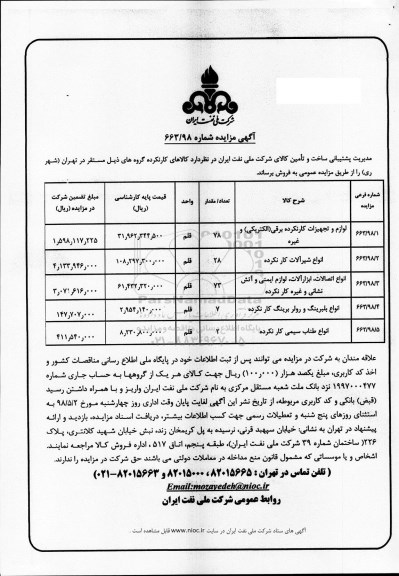 شرکت ملی نفت ایران
آگهی مزایده شماره ۶۶۳/۹۸
مدیریت پشتیبانی ساخت و تأمین کالای شرکت ملی نفت ایران در نظردارد کالاهای کارنکرده گروه های ذیـل مستقر در تهران (شهر
ری) را از طریق مزایده عمومی به فروش برساند.
شماره فرعی مزایده	شرح کالا	تعداد/ مقدار	واحد	قیمت پایه کارشناسی (ریال)	مبلغ تضمین شرکت در مزایده (ریال)
۶۶۳/۹۸/۱	لوازم و تجهیزات کارنکرده برقی(الکتریکی) و غیره	۷۸	قلم	۳۱,۹۶۲,۳۴۴,۵۰۰	۱,۵۹۸,۱۱۷,۲۲۵
۶۶۳/۹۸/۲	انواع شیرآلات کار نکرده	۲۸	قلم	۱۰۸,۲۹۷,۳۰۰,۰۰۰	۴,۱۳۳,۹۴۶,۰۰۰
۶۶۳/۹۸/۳	انواع اتصالات، ابزارآلات، لوازم ایمنی و آتش نشانی و غیره کار نکرده	۷۳	قلم	۶۱,۴۳۲,۳۲۰,۰۰۰	۳,۰۷۱,۶۱۶,۰۰۰
۶۶۳/۹۸/۴	انواع بلبرینگ و رولر برینگ کار نکرده	۷	قلم	۲,۹۵۴,۱۴۰,۰۰۰	۱۴۷,۷۰۷,۰۰۰
۶۶۳/۹۸/۵	انواع طناب سیمی کار نکرده	قلم	۸,۲۳۰,۸۰۰,۰۰۰	۴۱۱,۵۴۰,۰۰۰
علاقه مندان به شرکت در مزایده می توانند پس از ثبت اطلاعات خود در پایگاه ملی اطلاع رسانی مناقصات کشور و
اخذ کد کاربری، مبلغ یکصد هزار (۱۰۰,۰۰۰) ریـال جهت کـالای هـر یـک از گروهها به حساب جاری شماره
۱۹۹۷۰۰۰۴۷۷ نزد بانک ملت شعبه مستقل مرکزی به نام شرکت ملی نفت ایران واریـز و بـا همـراه داشتن رسید
(فیش) بانکی و کد کاربری مربوطه، از تاریخ نشر این آگهی لغایت پایان وقت اداری روز چهارشنبه مورخ ۹۸/۵/۲ به
استثنای روزهای پنج شنبه و تعطیلات رسمی جهت کسب اطلاعات بیشتر، دریافت اسناد مزایده، بازدید و ارائه
پیشنهاد در تهران به نشانی: خیابان سپهبد قرنی، نرسیده به پل کریمخان زند، نبش خیابان شهید کلانتـری، پـلاک
۲۲۶( ساختمان شماره ۳۹ شرکت ملی نفت ایران)، طبقه پنجم، اتاق ۵۱۷، اداره فروش کـالا مراجعه نمایند.
اشخاص و یا موسساتی که مشمول قانون منع مداخله در معاملات دولتی می باشند حق شرکت در مزایده را ندارند.
( تلفن تماس در تهران : ۸۲۰۱۵۶۶۵، ۸۲۰۱۵۰۰۰ و ۸۲۰۱۵۶۶۳-۰۲۱)
Email:mozayedeh@nioc.ir
روابط عمومی شرکت ملی نفت ایران
آگهی های ستاد شرکت ملی نفت ایران در سایت www.nioc.ir قابل مشاهده است.